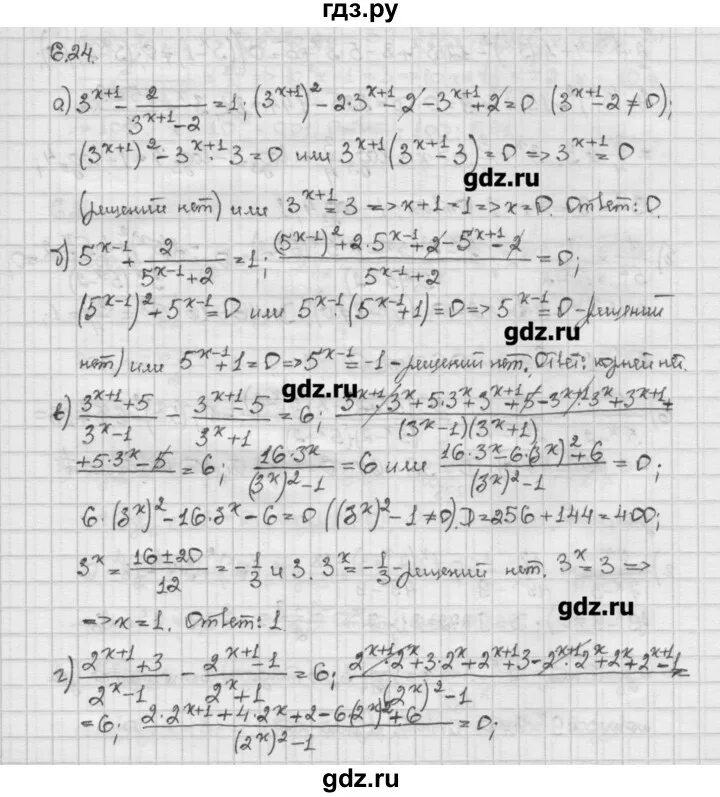 гдз.ру
6.24.
а) 3^{x+1} - \frac{2}{3^{x+1}-2} = 1; (3^{x+1})^2 - 2·3^{x+1} - 2 - 3^{x+1} + 2 = 0 (3^{x+1} - 2 ≠ 0);
(3^{x+1})^2 - 3^{x+1}·3 = 0 или 3^{x+1}(3^{x+1} - 3) = 0 => 3^{x+1} = 0
gdz.ru
(решений нет) или 3^{x+1} = 3 => x+1 = 1 => x = 0. Ответ: 0.
б) 5^{x-1} + \frac{2}{5^{x-1}+2} = 1; \frac{(5^{x-1})^2 + 2·5^{x-1} + 2 - 5^{x-1} - 2}{5^{x-1}+2} = 0;
(5^{x-1})^2 + 5^{x-1} = 0 или 5^{x-1}·(5^{x-1} + 1) = 0 => 5^{x-1} = 0 - решений
gdz.ru
нет) или 5^{x-1} + 1 = 0 => 5^{x-1} = -1 - решений нет. Ответ: корней нет.
gdz.ru
в) \frac{3^{x+1}+5}{3^x-1} - \frac{3^{x+1}-5}{3^x+1} = 6; \frac{3^{x+1}·3^x + 5·3^x + 3^{x+1} + 5 - 3^{x+1}·3^x + 3^{x+1} +}{(3^x-1)(3^x+1)}
\frac{+5·3^x - 5}{} = 6; \frac{16·3^x}{(3^x)^2-1} = 6 или \frac{16·3^x - 6·(3^x)^2 + 6}{(3^x)^2-1} = 0;
6·(3^x)^2 - 16·3^x - 6 = 0 ((3^x)^2 - 1 ≠ 0). D = 256 + 144 = 400;
3^x = \frac{16±20}{12} = -\frac{1}{3} и 3. 3^x = -\frac{1}{3} - решений нет. 3^x = 3 =>
gdz.ru
=> x = 1. Ответ: 1.
г) \frac{2^{x+1}+3}{2^x-1} - \frac{2^{x+1}-1}{2^x+1} = 6; \frac{2^{x+1}·2^x + 3·2^x + 2^{x+1} + 3 - 2^{x+1}·2^x + 2^x + 2^{x+1} - 1}{(2^x)^2-1}
= 6; \frac{2·2^{x+1} + 4·2^x + 2 - 6(2^x)^2 + 6}{(2^x)^2-1} = 0;
gdz.ru